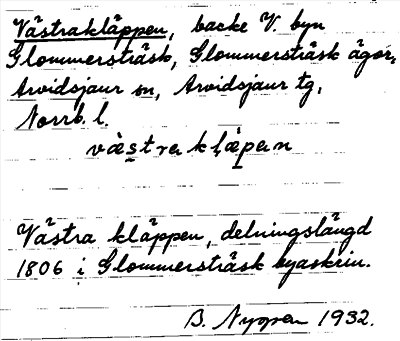 Västrakläppen, backe V. byn
Glommersträsk, Glommersträsk ägor,
Arvidsjaur sn, Arvidsjaur tg,
Norrb. l.
Västra kläppen, delningslängd
1806 i Glommersträsk byaskrin.
B. Nygren 1932.